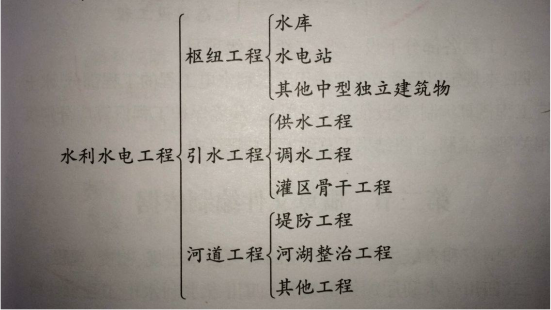 水库
枢纽工程 水电站
其他中型独立建筑物
供水工程
水利水电工程 引水工程 调水工程
灌区骨干工程
堤防工程
河道工程 河湖整治工程
其他工程